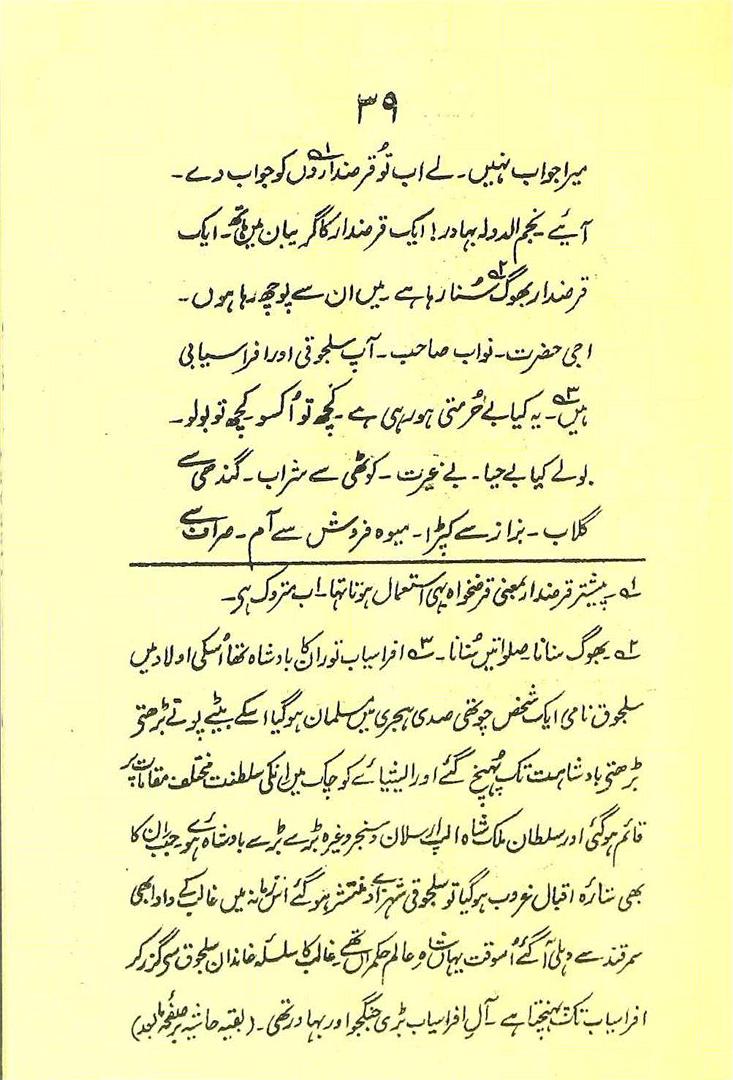 ۳۹
میرا جواب نہیں۔ لے اب تُو قرضداروں۱؎ کو جواب دے۔
آئیے نجم الدولہ بہادر! ایک قرضدار کا گریبان میں ہاتھ۔ ایک
قرضدار بھوگ۲؎ سُنا رہا ہے۔ میں ان سے پوچھ رہا ہوں۔
اجی حضرت۔ نواب صاحب۔ آپ سلجوقی اور افراسیابی
ہیں۳؎۔ یہ کیا بے حُرمتی ہو رہی ہے۔ کچھ تو اُکسو کچھ تو بولو۔
بولے کیا بے حیا۔ بے غیرت۔ کوٹھی سے شراب۔ گندھی سے
گلاب۔ بزاز سے کپڑا۔ میوہ فروش سے آم۔ صراف سے
۱؎ پیشتر قرضدار بمعنی قرضخواہ بھی استعمال ہوتا تھا۔ اب متروک ہی۔
۲؎ بھوگ سنانا۔ صلواتیں سُنانا۔ ۳؎ افراسیاب توران کا بادشاہ تھا اُسکی اولاد میں
سلجوق نامی ایک شخص چوتھی صدی ہجری میں مسلمان ہو گیا اسکے بیٹے پوتے بڑھتی
بڑھتی بادشاہت تک پہُنچ گئے اور ایشیائے کوچک میں انکی سلطنت مختلف مقامات پر
قائم ہو گئی اور سلطان ملک شاہ الپ ارسلان و سنجر وغیرہ بڑے بڑے بادشاہ ہوے جب ان کا
بھی ستارہ اقبال غروب ہو گیا تو سلجوقی شہزادے منتشر ہو گئے اس زمانہ میں غالب کے دادا بھی
سمرقند سے دہلی آ گئے اُسوقت یہاں شاہ عالم حکمراں تھے۔ غالب کا سلسلہ خاندان سلجوق سی گزر کر
افراسیاب تک پہنچتا ہے۔ آلِ افراسیاب بڑی جنگجو اور بہادر تھی۔ (بقیہ حاشیہ بر صفحہ مابعد)